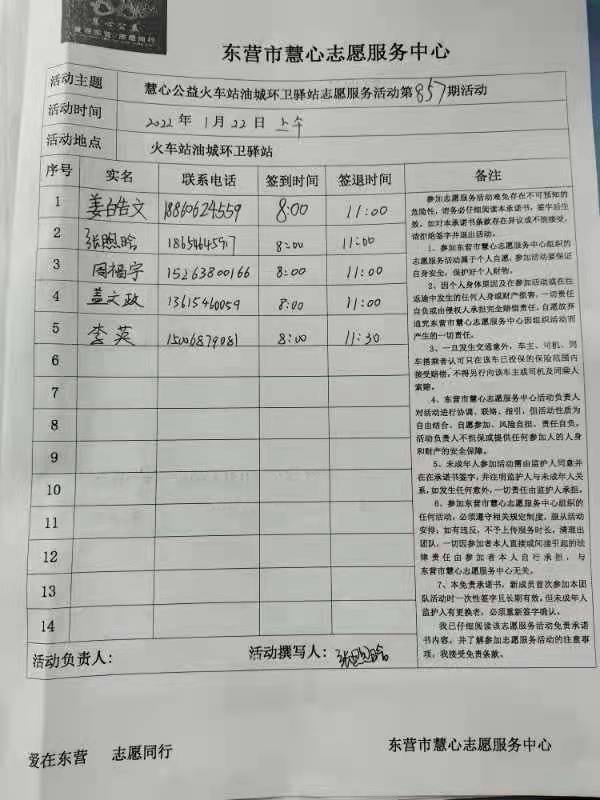 慧心公益
爱在东营 志愿同行
东营市慧心志愿服务中心
活动主题 慧心公益火车站油城环卫驿站志愿服务活动第857期活动
活动时间 2022年1月22日上午
活动地点 火车站油城环卫驿站
序号 实名 联系电话 签到时间 签退时间 备注
1 姜皓文 18860624559 8:00 11:00
2 张照晗 18654645917 8:00 11:00
3 周福宇 15263800166 8:00 11:00
4 盖文政 13615460059 8:00 11:00
5 李英 15006879081 8:00 11:30
6
7
8
9
10
11
12
13
14
参加志愿服务活动难免存在不可预知的
危险性,请务必仔细阅读本承诺书,签字后生
效。如对本承诺书条款存在异议或不能接受,
请拒绝签字并退出活动。
1、参加东营市慧心志愿服务中心组织的
志愿服务活动属于个人自愿,参加活动要保证
自身安全,保护好个人财物。
2、因个人身体原因及在参加活动或在往
返途中发生的任何人身或财产损害,一切责任
自负或由侵权人承担完全赔偿责任,自愿放弃
追究东营市慧心志愿服务中心因组织活动而
产生的一切责任。
3、一旦发生交通意外,车主、司机、同
车搭乘者认可只在该车已投保的保险范围内
接受赔偿,不得另行向该车主或司机及同乘人
索赔。
4、东营市慧心志愿服务中心活动负责人
对活动进行协调、联络、指引,但活动性质为
自由结合、自愿参加、风险自担、责任自负,
活动负责人不担保或提供任何参加人的人身
和财产的安全保障。
5、未成年人参加活动需由监护人同意并
在在承诺书签字,并注明监护人与未成年人关
系,如发生任何意外,一切责任由监护人承担。
6、参加东营市慧心志愿服务中心组织的
任何活动,必须遵守相关规定制度,服从活动
安排;如有违反,不予上传服务时长,清退出
团队,一切因参加者本人直接或间接引起的法
律责任由参加者本人自行承担,与
东营市慧心志愿服务中心无关。
7、本免责承诺书,新成员首次参加本团
队活动时一次性签字且长期有效。但未成年人
监护人有更换者,必须重新签字确认。
我已仔细阅读该志愿服务活动免责承诺
书内容,并了解参加志愿服务活动的注意事
项,我接受免责条款。
活动负责人: 活动撰写人:张照晗
爱在东营 志愿同行 东营市慧心志愿服务中心